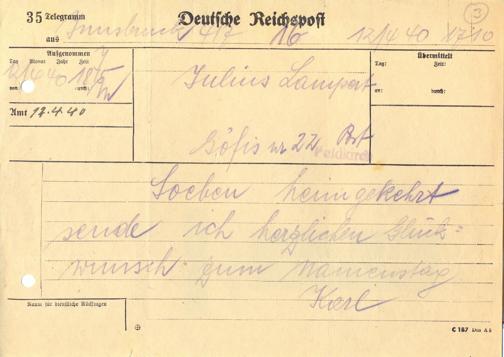 ③
35 Telegramm Deutsche Reichspost
aus Innsbruck 4/7 16 12/4 40 1710
Aufgenommen
Tag Monat Jahr Zeit
12/4 40 18
von: durch:
Übermittelt
Tag: Zeit:
an: durch:
Julius Lampert
Amt 12.4.40
Göfis nr 22 Post
Feldkirch
Soeben heimgekehrt
sende ich herzlichen Glück=
wunsch zum Namenstag
Karl
Raum für dienstliche Rückfragen
⊕ C 187 Din A 5